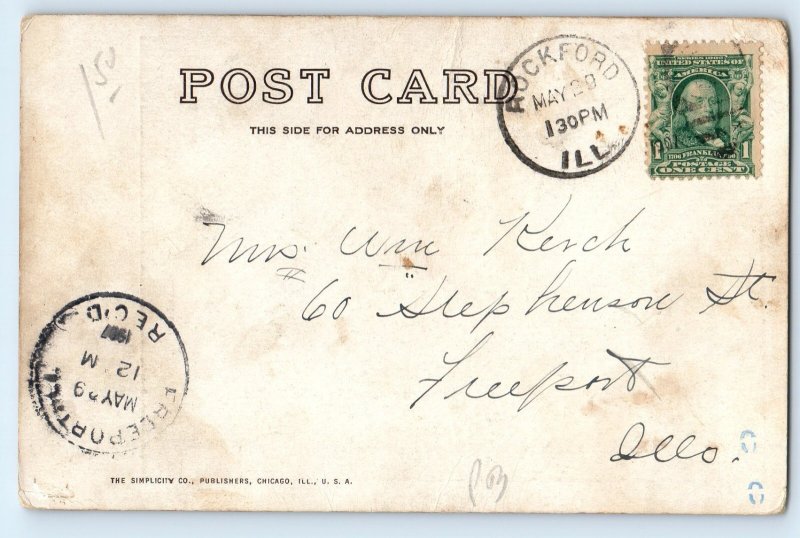 1.50
POST CARD
THIS SIDE FOR ADDRESS ONLY
ROCKFORD
MAY 29
1 30 PM
ILL.
SERIES 1902
UNITED STATES OF
AMERICA
1706 FRANKLIN 1790
1 POSTAGE 1
ONE CENT
Mrs. Wm Kerch
60 Stephenson St.
Freeport
Ills.
FREEPORT ILL.
MAY 29
12 M
1907
REC'D
THE SIMPLICITY CO., PUBLISHERS, CHICAGO, ILL., U. S. A.